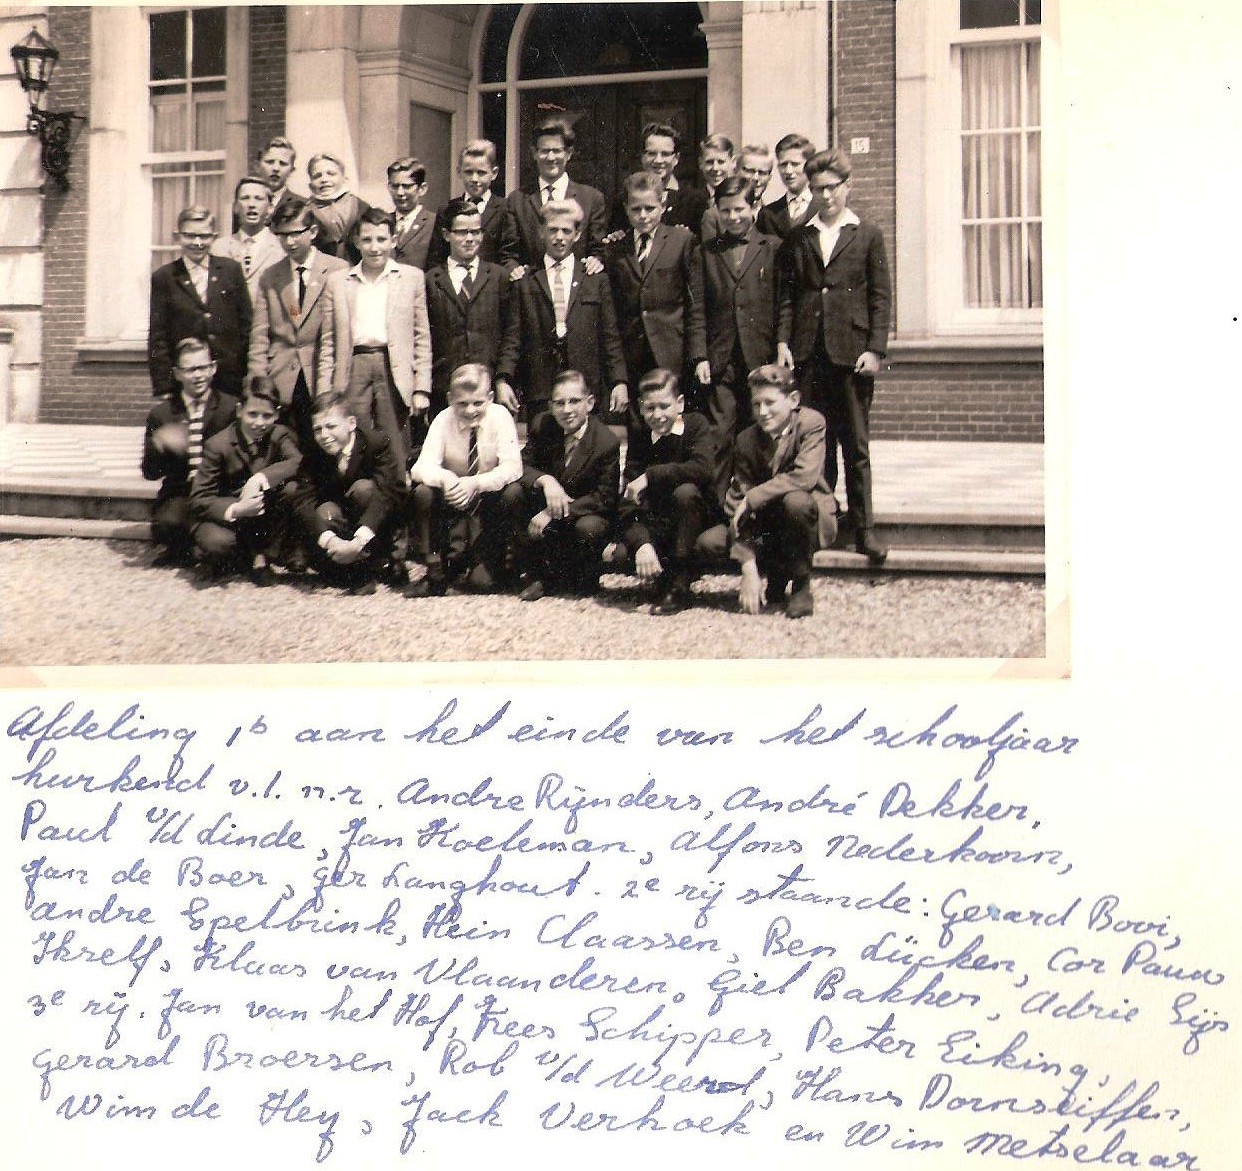 15
Afdeling 1b aan het einde van het schooljaar
hurkend v.l.n.r. Andre Rijnders, André Dekker,
Paul v/d Linde, Jan Koeleman, Alfons Nederkoorn,
Jan de Boer, Ger Langhout. 2e rij staande: Gerard Booi,
Andre Spelbrink, Hein Claassen, Ben Lücken, Cor Pauw
Ikzelf, Klaas van Vlaanderen, Giel Bakker, Adrie Gijs
3e rij. Jan van het Hof, Kees Schipper, Peter Eiking,
Gerard Broersen, Rob v/d Weerd, Hans Dornseiffen,
Wim de Hey, Jack Verhoek en Wim Metselaar